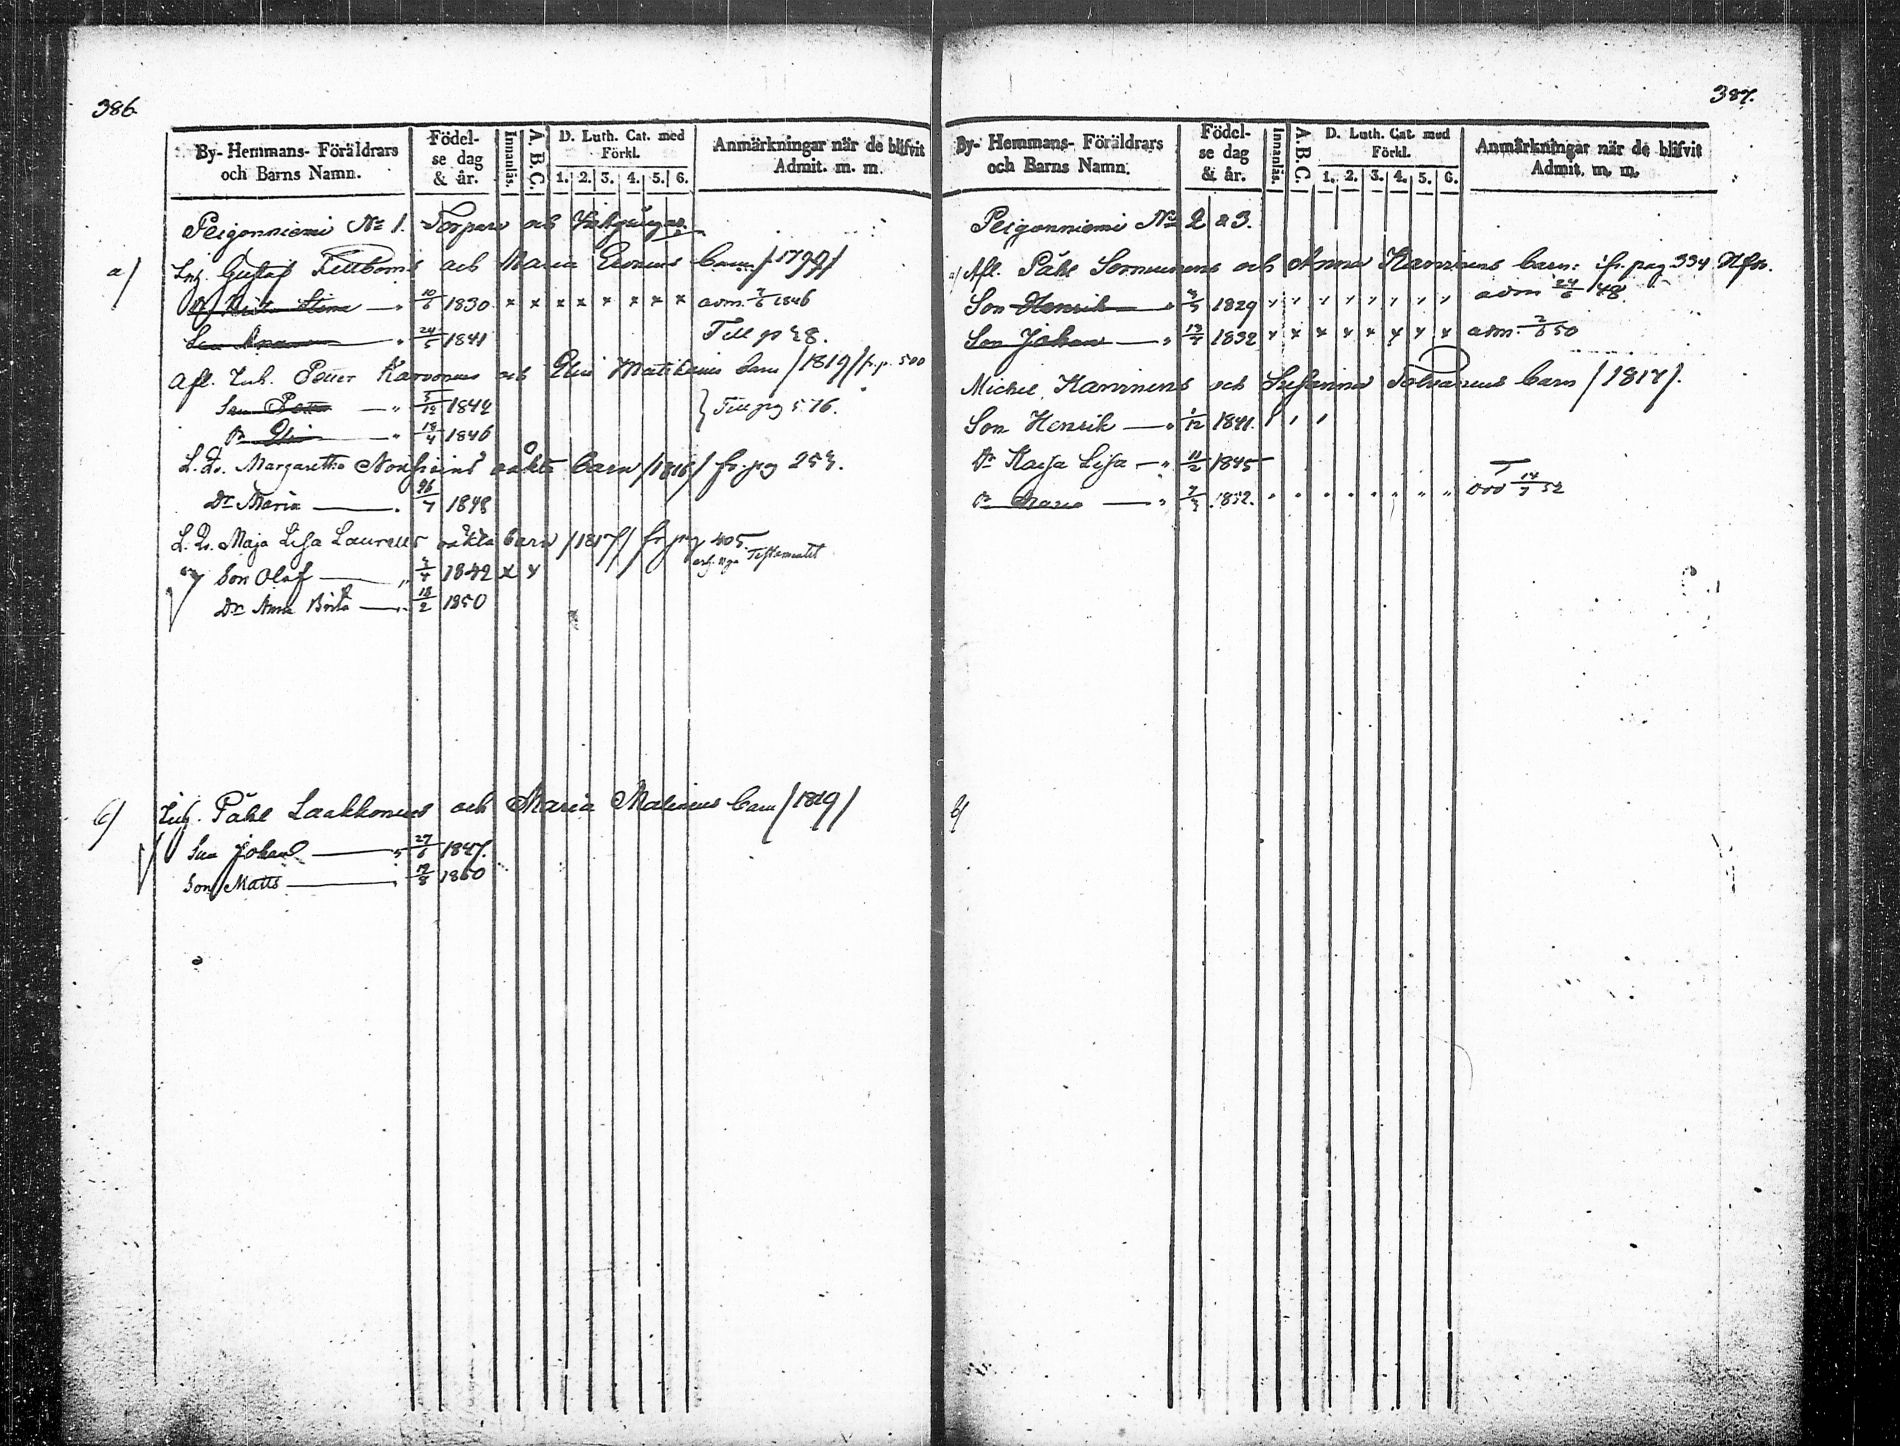 386.
By- Hemmans- Föräldrars och Barns Namn.
Födel- se dag & år.
Innanläs.
A. B. C.
D. Luth. Cat. med Förkl.
1. 2. 3. 4. 5. 6.
Anmärkningar när de blifvit Admit. m. m.
Peigonniemi No 1. Torpare och
a) Inh. Gustaf och Maria barn /1799/
Stina 10/6 1830 x x x x x x x x adm. 7/6 1846
24/5 1841 Till p 48.
Afl. Inh. Petter Karvonens och Elin barn /1819/ fr. p. 500
Son Petter 5/12 1842 } Till pg 576.
Dr Elin 18/4 1846
L. Qv. Margaretha oäkta barn /1816/ fr. pg 253.
Dr Maria 26/7 1848
L. Qv. Maja Lisa Laurells oäkta barn /1817/ fr. pg 405
Son Olof 3/4 1842 x x Nya Testamentet
Dr Anna Brita 18/2 1850
Inh. Påhl Laakkonens och Maria Malinens barn /1819/
Son Johan 27/6 1847.
Son Matts 7/8 1850
387.
By- Hemmans- Föräldrars och Barns Namn.
Födel- se dag & år.
Innanläs.
A. B. C.
D. Luth. Cat. med Förkl.
1. 2. 3. 4. 5. 6.
Anmärkningar när de blifvit Admit. m. m.
Peigonniemi No 2 a 3.
a) Afl. Påhl Sormunens och Anna Karvinens barn: fr. pag 334
Son Henrik 1829 adm 24/6 48.
Son Johan 1832 x x x x x x x x adm. 2/6 50
Michel Karvinens och Susanna Tolvanens barn /1817/.
Son Henrik 1/12 1841.
Dr Kaisa Lisa 11/2 1845
Dr Maria 1852. död 14/7 52
b)